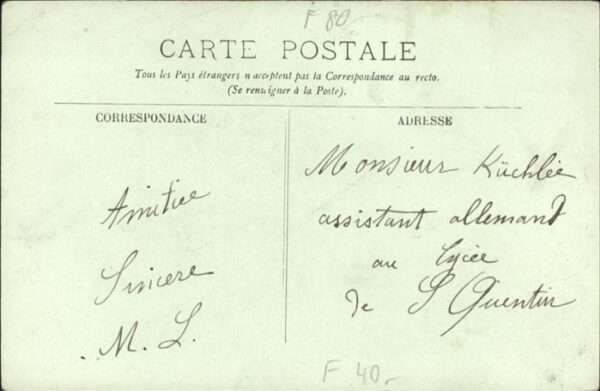 F 80
CARTE POSTALE
Tous les Pays étrangers n'acceptent pas la Correspondance au recto.
(Se renseigner à la Poste).
CORRESPONDANCE
Amitiée
Sincere
. M. L.
ADRESSE
Monsieur Küchlée
assistant allemand
au lycée
de S Quentin
F 40.-